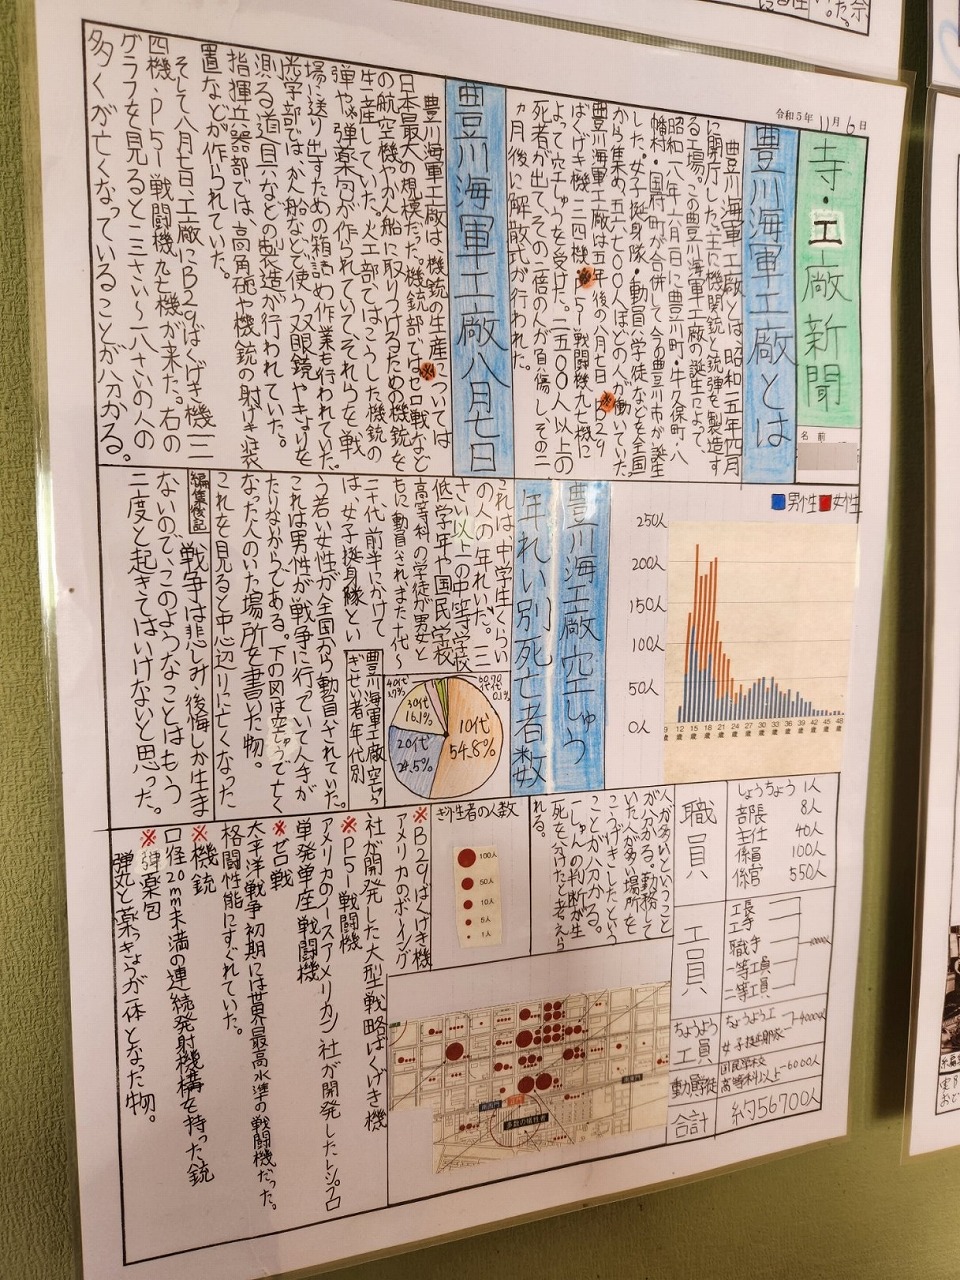 令和5年 11月 6日
寺・工廠新聞
名前
豊川海軍工廠とは
豊川海軍工廠とは、昭和一五年四月
に開庁した、主に機関銃と銃弾を製造す
る工場。この豊川海軍工廠の誕生によって、
昭和一八年六月一日に豊川町・牛久保町・八
幡村・国府町が合併して今の豊川市が誕生
した。女子挺身隊・動員学徒などを全国
から集め、五六七〇〇人ほどの人が働いていた。
豊川海軍工廠は五年後の八月七日※B29
ばくげき機一二四機※P51戦闘機九七機に
よって空しゅうを受けた。二五〇〇人以上の
死者が出て、その二倍の人が負傷し、その一
ヵ月後に解散式が行われた。
豊川海軍工廠八月七日
豊川海軍工廠は※機銃の生産については
日本最大の規模だった。機銃部ではゼロ戦など
の航空機やかん船に取りつけるための機銃を
生産していた。火工部ではこうした機銃の
弾や※弾薬包が作られていて、それらを戦
場に送り出すための箱詰め作業も行われていた。
光学部では、かん船などで使う双眼鏡やきょりを
測る道具などの製造が行われていた。
指揮兵器部では、高角砲や機銃の射げき装
置などが作られていた。
そして八月七日、工廠にB29ばくげき機一二
四機、P51戦闘機九七機が来た。右の
グラフを見ると一三さい〜一八さいの人の
多くが亡くなっていることが分かる。
男性 女性
250人
200人
150人
100人
50人
0人
9歳 12歳 15歳 18歳 21歳 24歳 27歳 30歳 33歳 36歳 39歳 42歳 45歳 48歳
豊川海工廠空しゅう
年れい別死亡者数
これは、中学生くらい
の人の年れいだ。一三
さい以上の中等学校
低学年や国民学校
高等科の学徒が男女と
もに動員されまた十代〜
二十代前半にかけて
は、女子挺身隊とい
う若い女性が全国から動員されていた。
これは男性が戦争に行っていて人手が
たりなかったからである。下の図は空しゅうで亡く
なった人のいた場所を書いた物。
これを見ると中心辺りに亡くなった
豊川海軍工廠空しゅう
ぎせい者年代別
10代
54.8%
20代
24.5%
30代
16.1%
40代
3.7%
60.70
代代
0.1%
編集後記
戦争は悲しみ、後悔しか生ま
ないので、このようなことはもう
二度と起きてはいけないと思った。
人が多いということ
が分かる。勤務して
いた人が多い場所を
こうげきしたという
ことが分かる。
一しゅんの判断が生
死を分けたと考えら
れる。
ぎせい者の人数
100人
50人
10人
5人
1人
職員
しょうちょう 1人
部長 8人
主任 40人
係員 100人
係官 550人
工員
工長
工手
職手
一等工員
二等工員
ちょうよう
工員
ちょうよう工
女子挺身隊
動員学徒
国民学校
高等科以上 6000人
合計
約56700人
※B29ばくげき機
アメリカのボーイング
社が開発した大型戦略ばくげき機
※P51戦闘機
アメリカのノースアメリカン社が開発したレシプロ
単発単座戦闘機
※ゼロ戦
太平洋戦争初期には世界最高水準の戦闘機だった。
格闘性能にすぐれていた。
※機銃
口径20mm未満の連続発射機構を持った銃
※弾薬包
弾丸と薬っきょうが一体となった物。